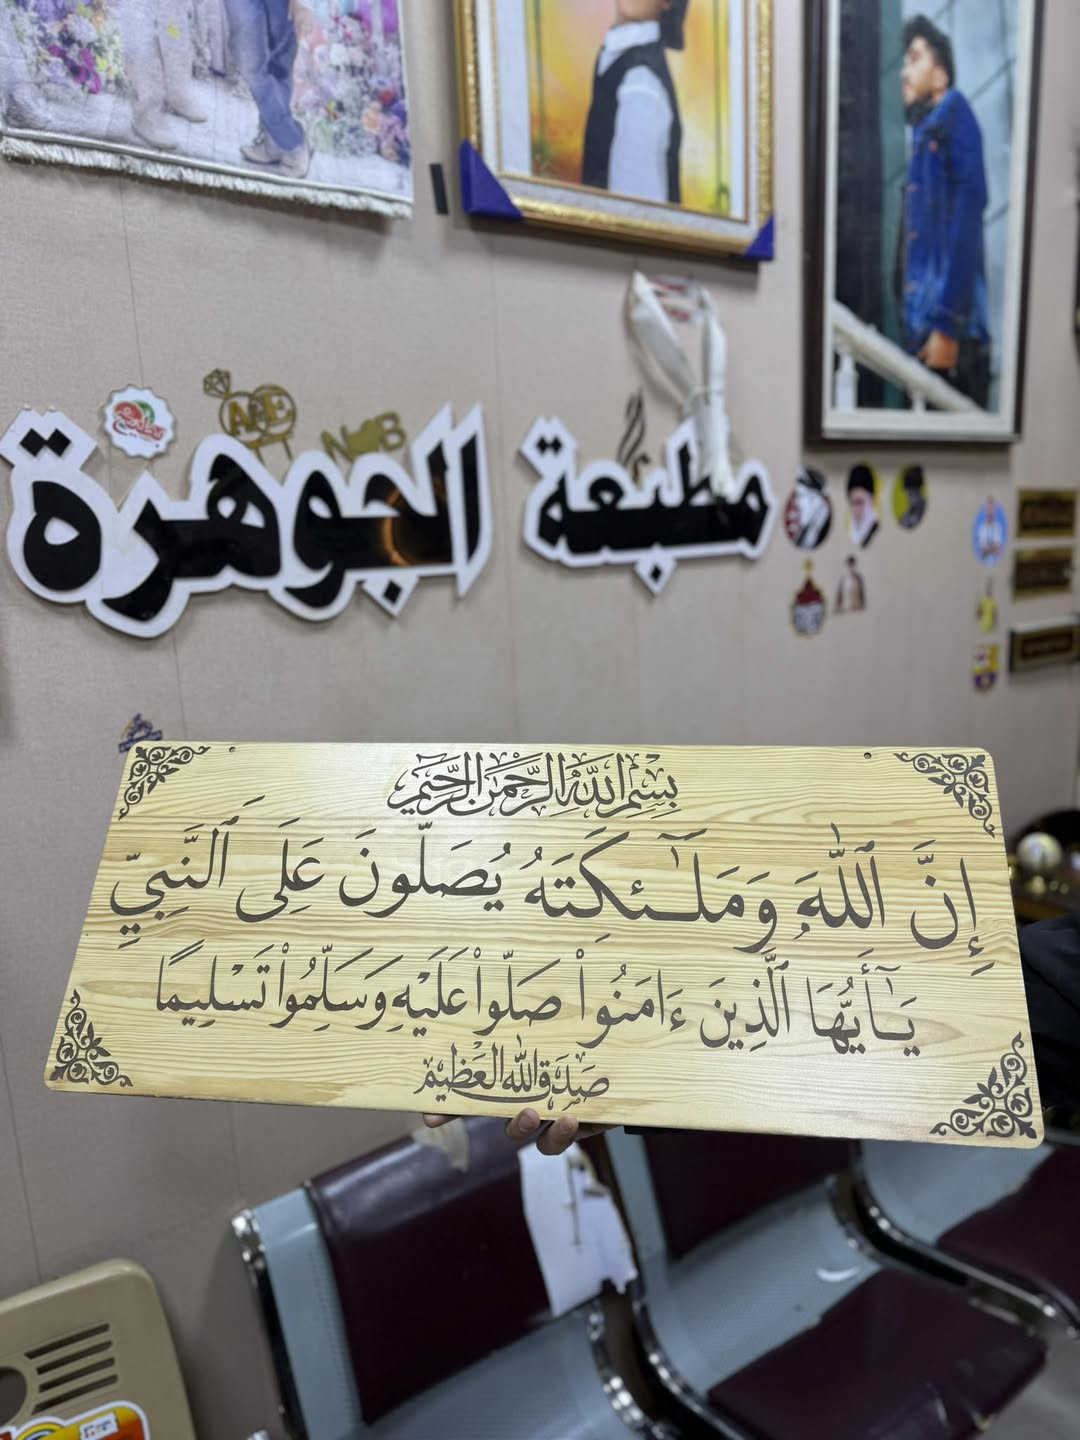 مطبعة الجوهرة
A&E
N B
بِسْمِ اللَّهِ الرَّحْمَنِ الرَّحِيمِ
إِنَّ ٱللَّهَ وَمَلَـٰٓئِكَتَهُۥ يُصَلُّونَ عَلَى ٱلنَّبِيِّ
يَـٰٓأَيُّهَا ٱلَّذِينَ ءَامَنُوا۟ صَلُّوا۟ عَلَيْهِ وَسَلِّمُوا۟ تَسْلِيمًا
صَدَقَ اللَّهُ الْعَظِيمُ